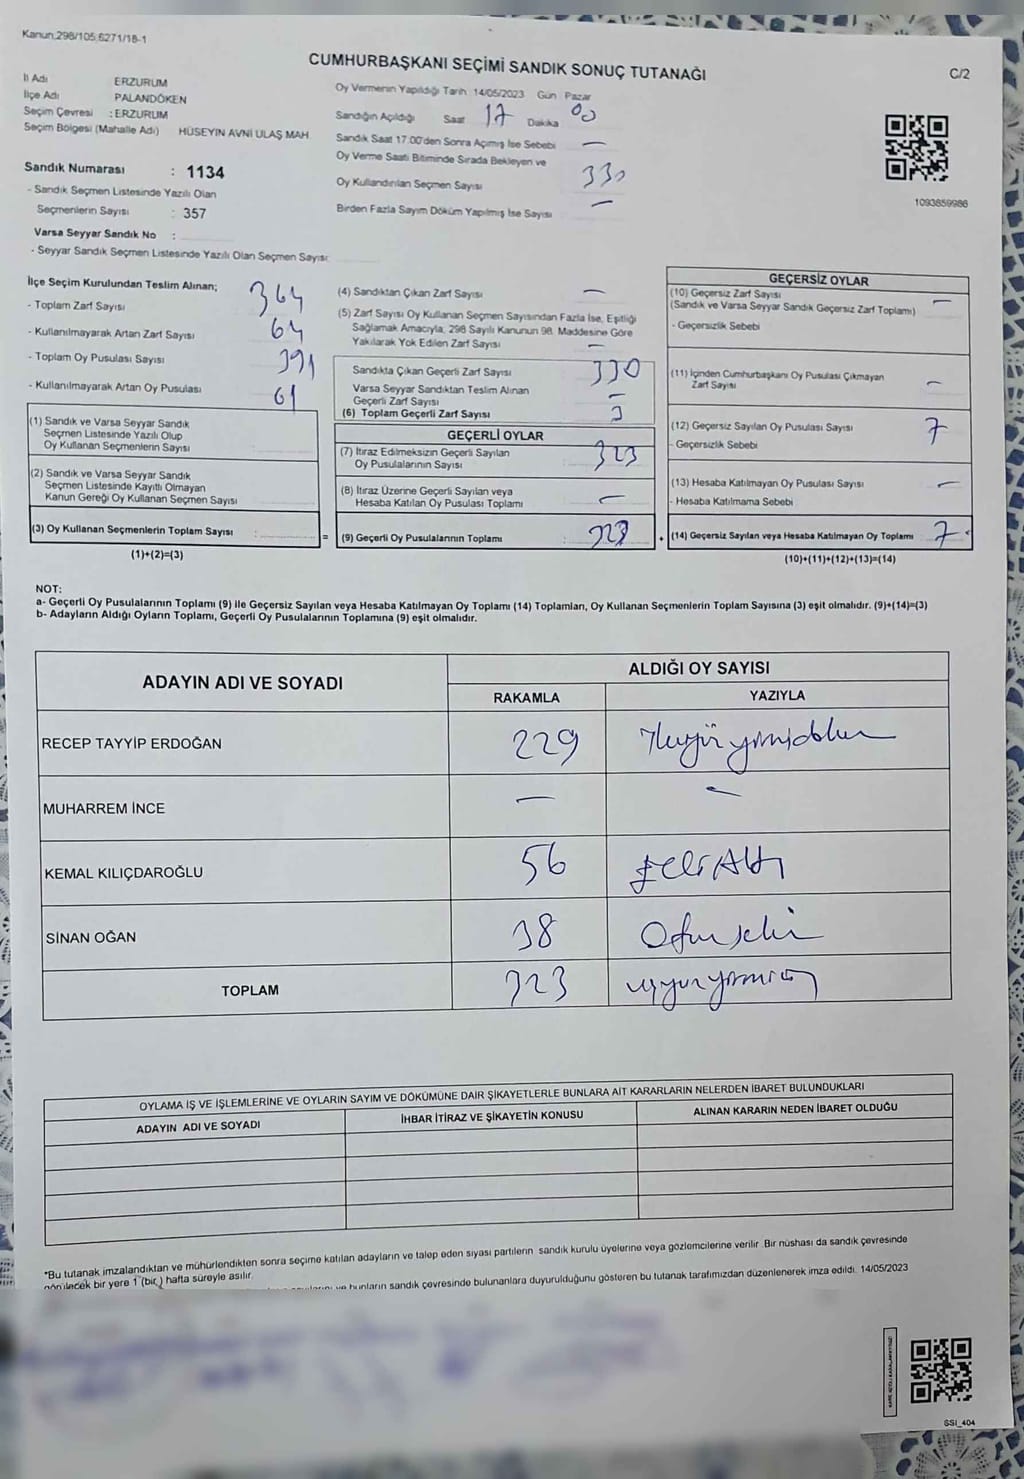 Kanun.298/105,6271/18-1
CUMHURBAŞKANI SEÇİMİ SANDIK SONUÇ TUTANAĞI
C/2
İl Adı ERZURUM
İlçe Adı PALANDÖKEN
Seçim Çevresi : ERZURUM
Seçim Bölgesi (Mahalle Adı) HÜSEYİN AVNİ ULAŞ MAH.
Sandık Numarası : 1134
- Sandık Seçmen Listesinde Yazılı Olan
Seçmenlerin Sayısı : 357
Varsa Seyyar Sandık No :
- Seyyar Sandık Seçmen Listesinde Yazılı Olan Seçmen Sayısı:
Oy Vermenin Yapıldığı Tarih 14/05/2023 Gün Pazar
Sandığın Açıldığı Saat 17 Dakika 00
Sandık Saat 17.00'den Sonra Açımış İse Sebebi —
Oy Verme Saati Bitiminde Sırada Bekleyen ve
Oy Kullandırılan Seçmen Sayısı 330
Birden Fazla Sayım Döküm Yapılmış İse Sayısı —
1093859986
İlçe Seçim Kurulundan Teslim Alınan;
- Toplam Zarf Sayısı 364
- Kullanılmayarak Artan Zarf Sayısı 64
- Toplam Oy Pusulası Sayısı 391
- Kullanılmayarak Artan Oy Pusulası 61
(1) Sandık ve Varsa Seyyar Sandık
Seçmen Listesinde Yazılı Olup
Oy Kullanan Seçmenlerin Sayısı
(2) Sandık ve Varsa Seyyar Sandık
Seçmen Listesinde Kayıtlı Olmayan
Kanun Gereği Oy Kullanan Seçmen Sayısı
(3) Oy Kullanan Seçmenlerin Toplam Sayısı : =
(1)+(2)=(3)
(4) Sandıktan Çıkan Zarf Sayısı —
(5) Zarf Sayısı Oy Kullanan Seçmen Sayısından Fazla İse, Eşitliği
Sağlamak Amacıyla, 298 Sayılı Kanunun 98. Maddesine Göre
Yakılarak Yok Edilen Zarf Sayısı —
Sandıkta Çıkan Geçerli Zarf Sayısı 330
Varsa Seyyar Sandıktan Teslim Alınan
Geçerli Zarf Sayısı —
(6) Toplam Geçerli Zarf Sayısı
GEÇERLİ OYLAR
(7) İtiraz Edilmeksizin Geçerli Sayılan
Oy Pusulalarının Sayısı : 323
(8) İtiraz Üzerine Geçerli Sayılan veya
Hesaba Katılan Oy Pusulası Toplamı —
(9) Geçerli Oy Pusulalarının Toplamı : 323 +
GEÇERSİZ OYLAR
(10) Geçersiz Zarf Sayısı
(Sandık ve Varsa Seyyar Sandık Geçersiz Zarf Toplamı) —
- Geçersizlik Sebebi
(11) İçinden Cumhurbaşkanı Oy Pusulası Çıkmayan
Zarf Sayısı —
(12) Geçersiz Sayılan Oy Pusulası Sayısı 7
- Geçersizlik Sebebi
(13) Hesaba Katılmayan Oy Pusulası Sayısı —
- Hesaba Katılmama Sebebi
(14) Geçersiz Sayılan veya Hesaba Katılmayan Oy Toplamı 7
(10)+(11)+(12)+(13)=(14)
NOT:
a- Geçerli Oy Pusulalarının Toplamı (9) ile Geçersiz Sayılan veya Hesaba Katılmayan Oy Toplamı (14) Toplamları, Oy Kullanan Seçmenlerin Toplam Sayısına (3) eşit olmalıdır. (9)+(14)=(3)
b- Adayların Aldığı Oyların Toplamı, Geçerli Oy Pusulalarının Toplamına (9) eşit olmalıdır.
ADAYIN ADI VE SOYADI
ALDIĞI OY SAYISI
RAKAMLA YAZIYLA
RECEP TAYYİP ERDOĞAN 229
MUHARREM İNCE — —
KEMAL KILIÇDAROĞLU 56
SİNAN OĞAN 38
TOPLAM 323
OYLAMA İŞ VE İŞLEMLERİNE VE OYLARIN SAYIM VE DÖKÜMÜNE DAİR ŞİKAYETLERLE BUNLARA AİT KARARLARIN NELERDEN İBARET BULUNDUKLARI
ADAYIN ADI VE SOYADI İHBAR İTİRAZ VE ŞİKAYETİN KONUSU ALINAN KARARIN NEDEN İBARET OLDUĞU
*Bu tutanak imzalandıktan ve mühürlendikten sonra seçime katılan adayların ve talep eden siyasi partilerin sandık kurulu üyelerine veya gözlemcilerine verilir. Bir nüshası da sandık çevresinde
görülecek bir yere 1 (bir ) hafta süreyle asılır.
ve bunların sandık çevresinde bulunanlara duyurulduğunu gösteren bu tutanak tarafımızdan düzenlenerek imza edildi. 14/05/2023
SSI_404